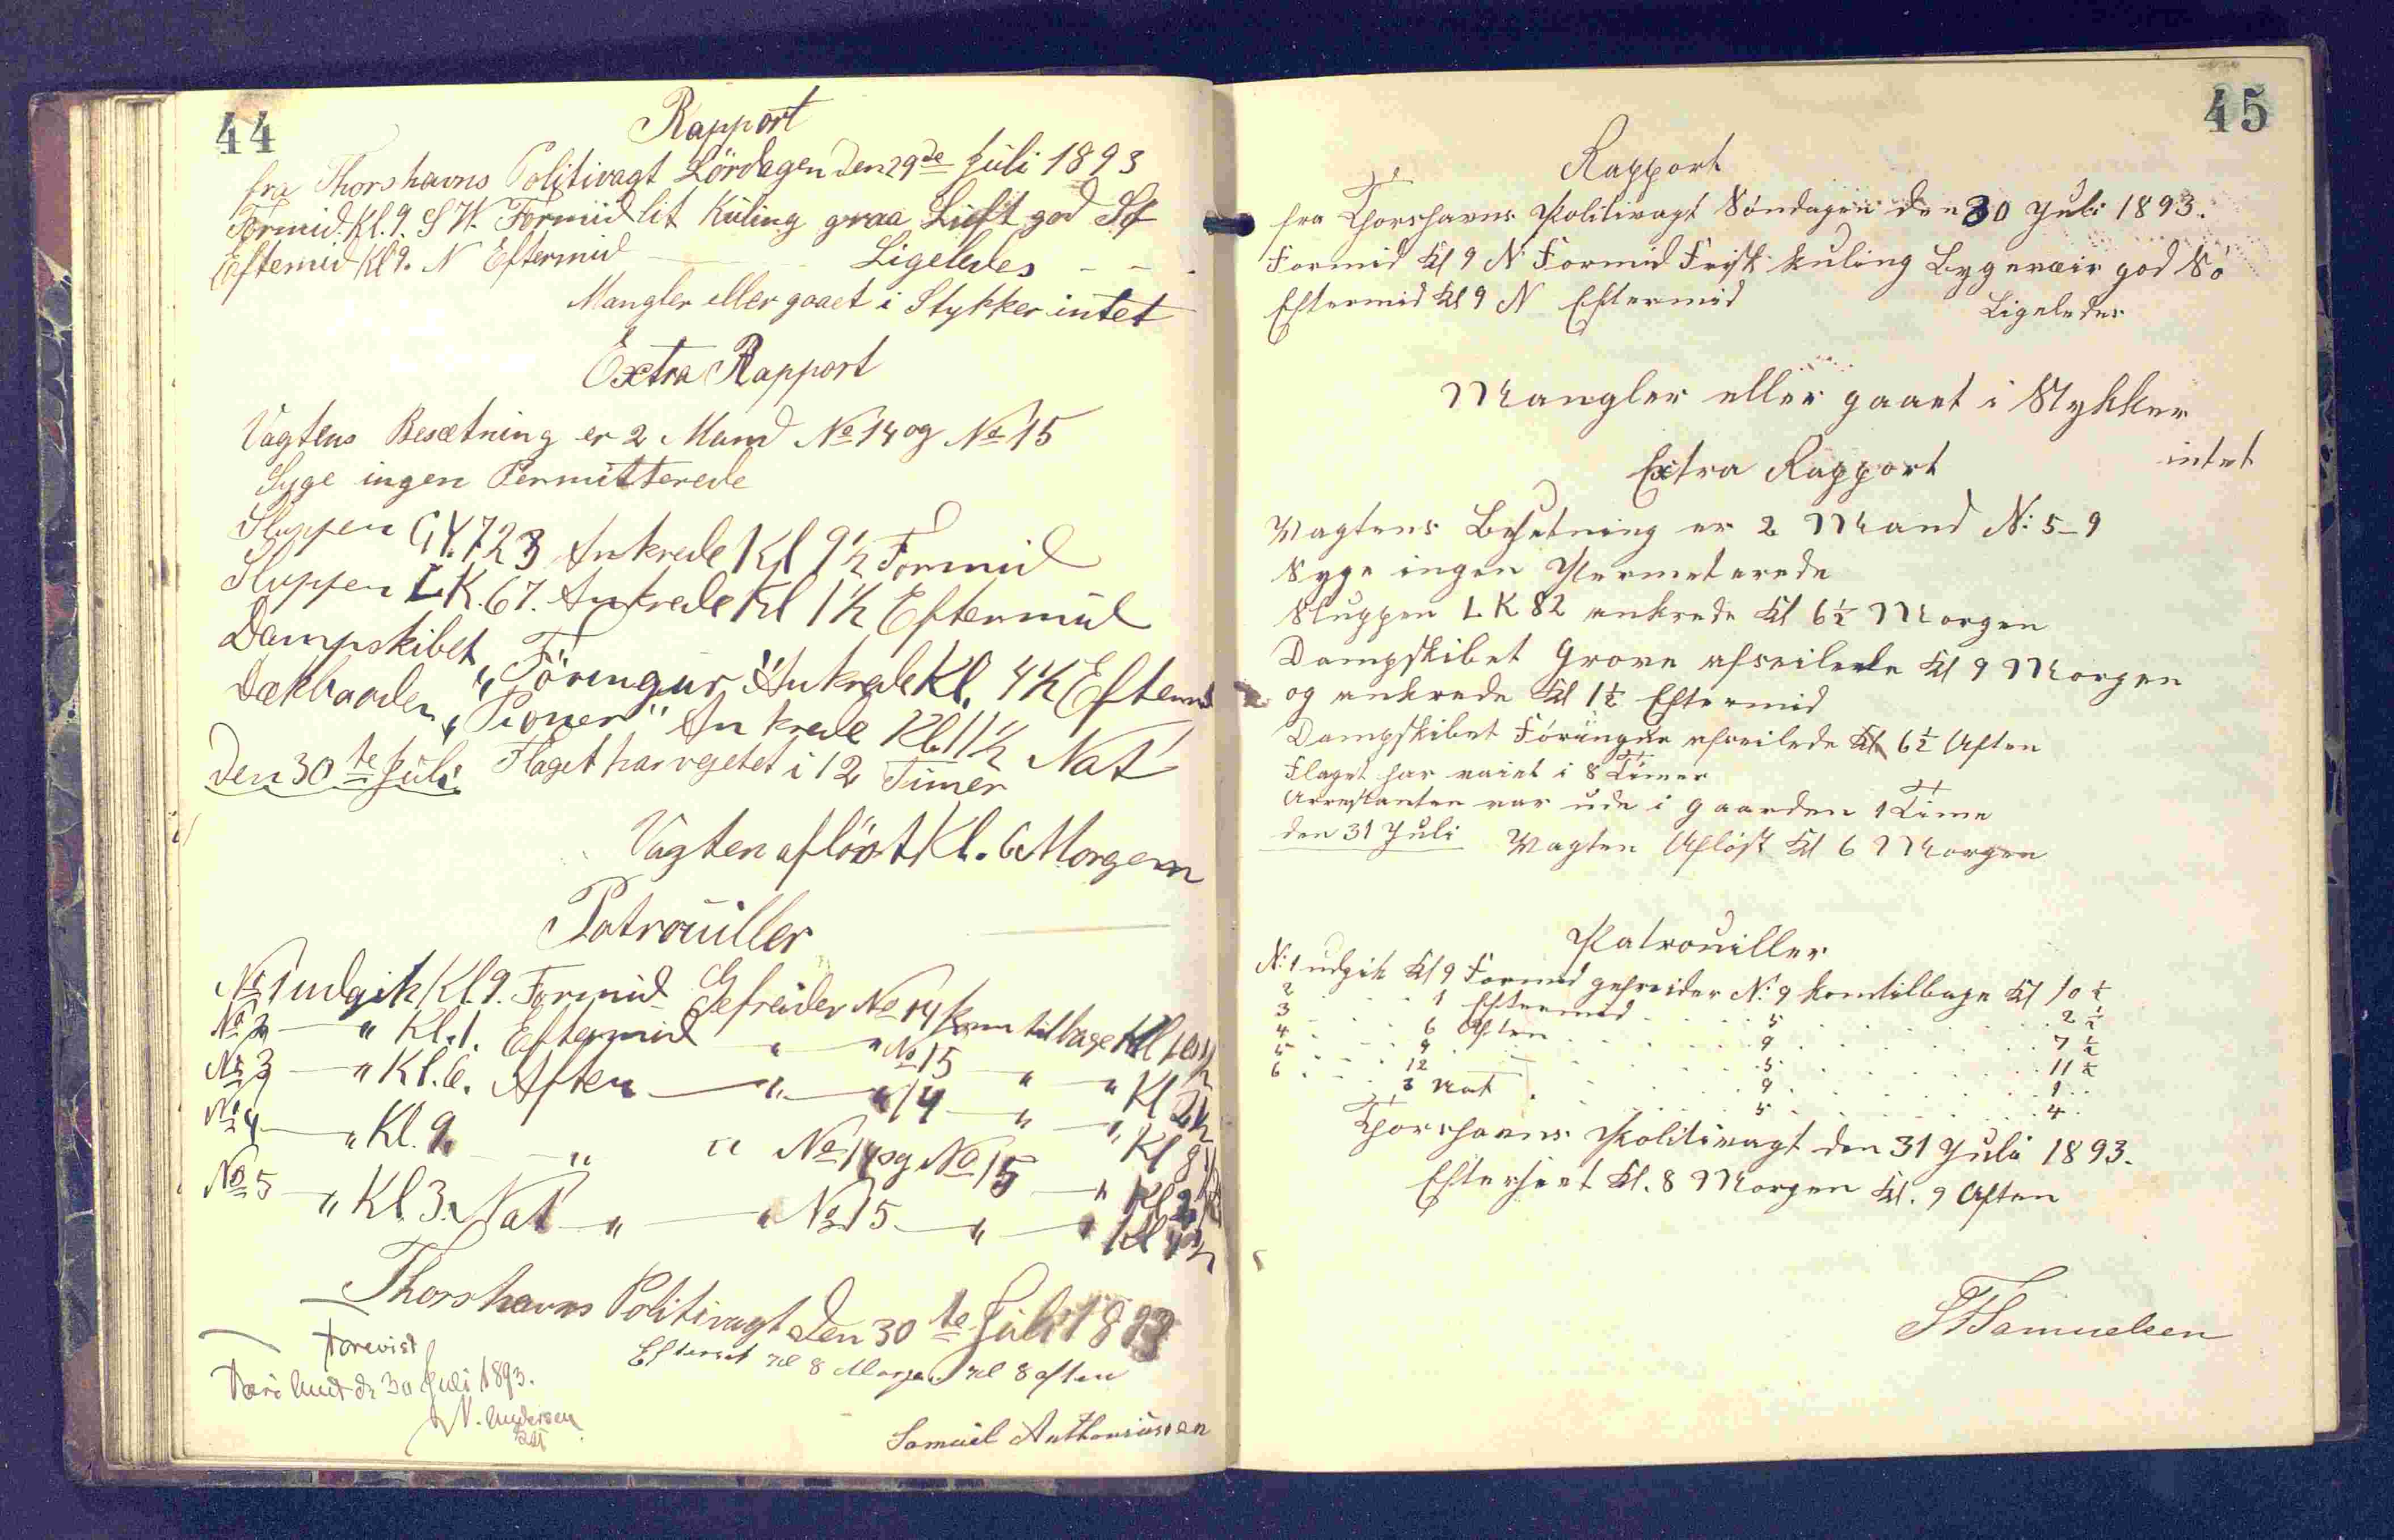 44
Rapport
fra Thorshavns Politivagt Lördagen den 29de Juli 1893
Formid. Kl. 9. S W. Formid lit Kuling graa Luft god Sö
Eftemid Kl 9. N Eftermid — Ligeledes - - .
Mangler eller gaaet i Stykker intet
Extra Rapport
Vagtens Besætning er 2 Mand No 14 og No 15
Syge ingen Permitterede
Sluppen G.Y. 723 Ankrede Kl 9½ Formid
Sluppen L.K. 67. Ankrede Kl 1½ Eftermid
Dampskibet „Föringur" Ankrede Kl. 4½ Efterm
Dækbaaden „Pioner" Ankrede Kl. 11½ Nat
den 30te Juli Flaget har vejetet i 12 Timer
Vagten aflöst Kl. 6 Morgen
Patrouiller
No 1 udgik Kl. 9. Formid Gefreider No 14 kom tilbage Kl 10½
No 2 — " Kl. 1. Eftermid " — " No 15 — " — " Kl 2½
No 3 — " Kl. 6. Aften — " — " 14 — " — " Kl 8½
No 4 — " Kl. 9. — " " No 14 og No 15 — " Kl 2
No 5 — " Kl. 3. Nat — " — " No 15 — " — " Kl 4½
Thorshavns Politivagt den 30te Juli 1893
Efterset Kl 8 Morgen Kl 8 aften
Forevist
30 Juli 1893.
N. Andersen
Samuel Anthoniussen
45
Rapport
fra Thorshavns Politivagt Söndagen den 30 Juli 1893.
Formid Kl 9 N Formid Frisk kuling Bygeveir god Sö
Eftermid Kl 9 N Eftermid Ligeledes
Mangler eller gaaet i Stykker
intet
Extra Rapport
Vagtens Besetning er 2 Mand N: 5-9
Syge ingen Permeterede
Sluppen L K 82 ankrede Kl 6½ Morgen
Dampskibet Grove afseilede Kl 9 Morgen
og ankrede Kl 1½ Eftermid
Dampskibet Föringur afseilede Kl 6½ Aften
Flaget har vaiet i 8 Timer
Arrestanten var ude i gaarden 1 Time
den 31 Juli Vagten Aflöst Kl 6 Morgen
Patrouiller
N: 1 udgik Kl 9 Formid gefreider N: 9 kom tilbage Kl 10½
2 . . . 1 Eftermid . . . 5 . . . 2½
3 . . . 6 Aften . . . 9 . . . 7½
4 . . . 9 . . . 5 . . . 11½
5 . . . 12 . . . 9 . . . 1 . .
6 . . . 3 Nat . . . 5 . . . 4 . .
Thorshavns Politivagt den 31 Juli 1893.
Efterseet Kl. 8 Morgen Kl. 9 Aften
Samuelsen